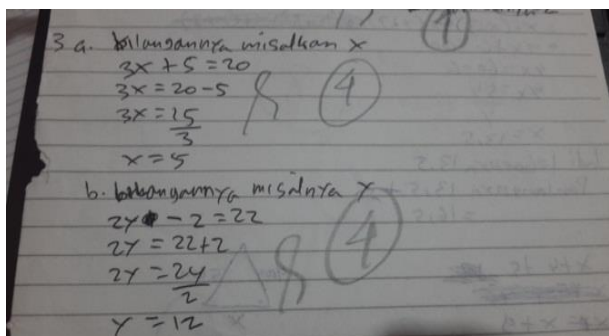 3 a. bilangannya misalkan x
3x + 5 = 20
3x = 20 - 5
3x = 15
3
x = 5
4
b. bilangannya misalnya y
2y - 2 = 22
2y = 22 + 2
2y = 24
2
y = 12
4